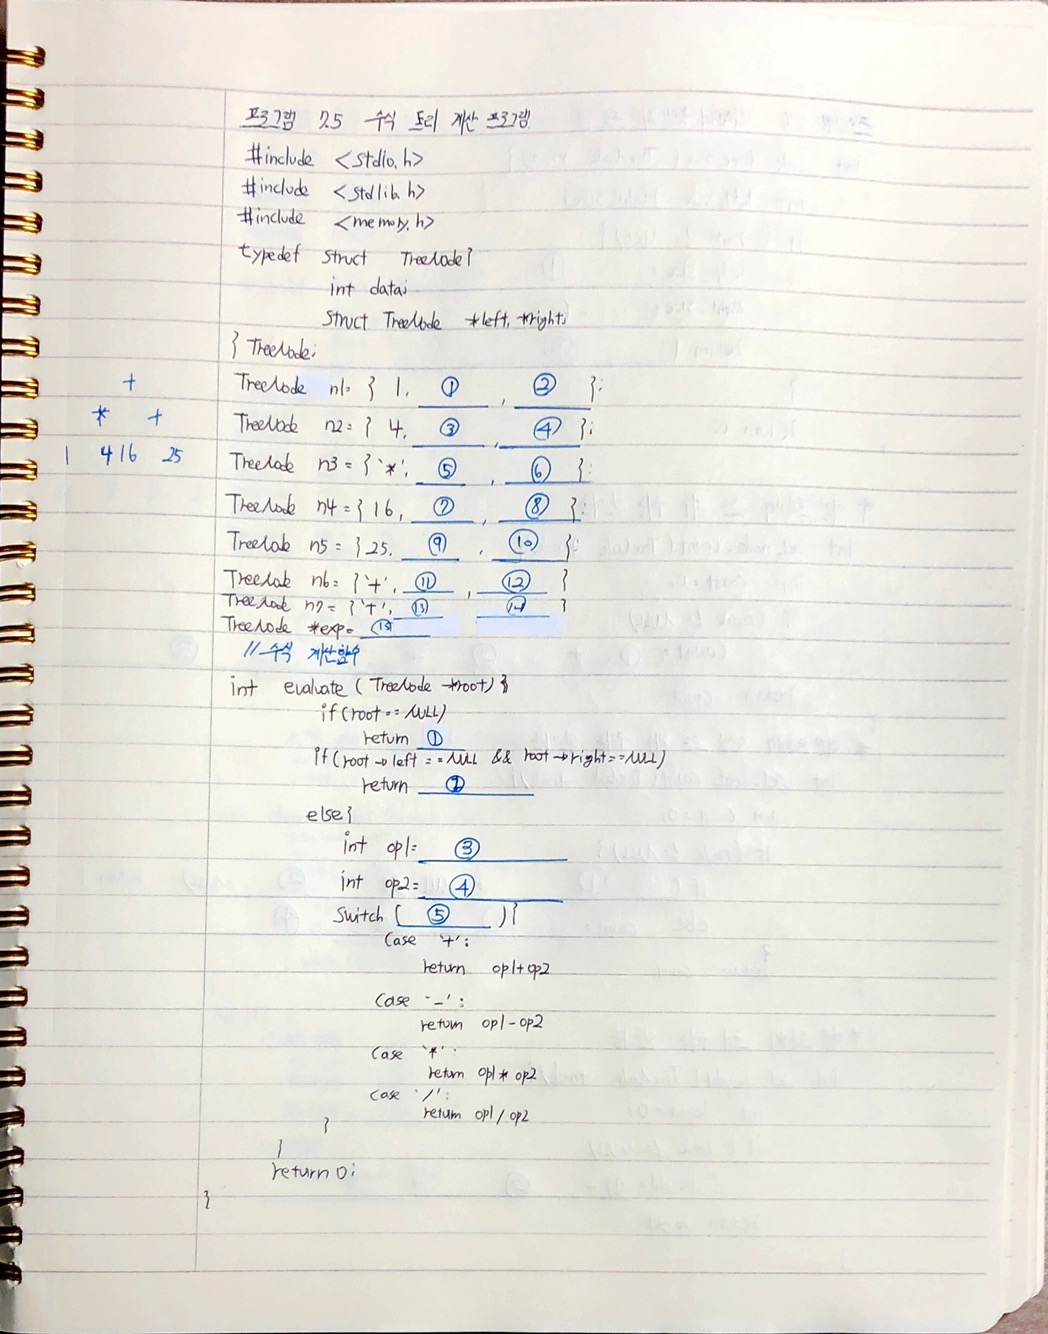 프로그램 7.5 수식 트리 계산 프로그램
#include <stdio.h>
#include <stdlib.h>
#include <memory.h>
typedef struct TreeNode{
int data;
struct TreeNode *left, *right;
} TreeNode;
+
TreeNode n1= { 1, ① , ② };
* +
TreeNode n2= { 4, ③ , ④ };
1 4 16 25
TreeNode n3 = { '*', ⑤ , ⑥ };
TreeNode n4 = { 16, ⑦ , ⑧ };
TreeNode n5 = { 25, ⑨ , ⑩ };
TreeNode n6= { '+', ⑪ , ⑫ }
TreeNode n7 = { '+', ⑬ ⑭ }
TreeNode *exp= ⑮
// 수식 계산함수
int evaluate ( TreeNode *root) {
if(root == NULL)
return ①
if(root→left == NULL && root→right==NULL)
return ②
else{
int op1= ③
int op2= ④
switch ( ⑤ ){
case '+':
return op1+op2
case '-':
return op1-op2
case '*':
return op1* op2
case '/':
return op1/op2
}
}
return 0;
}